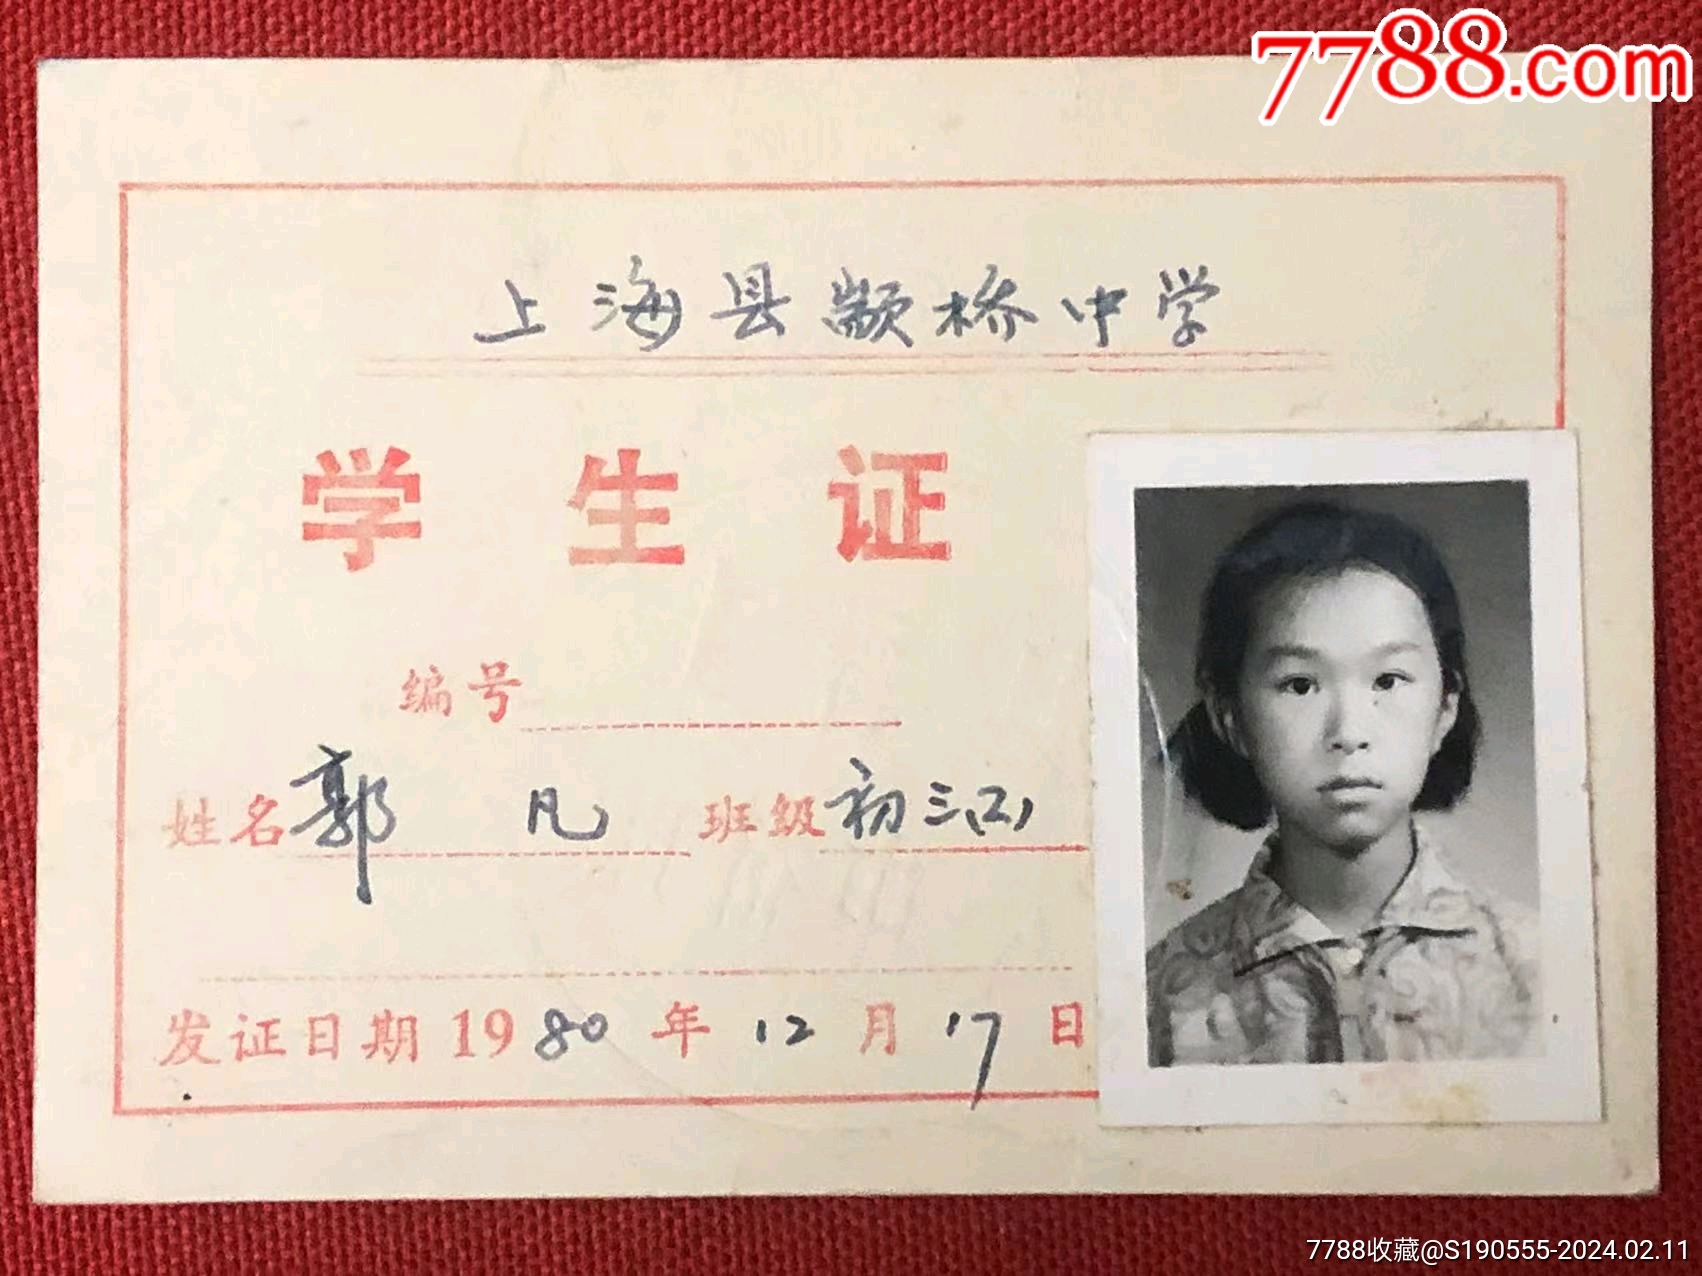 7788.com
上海县颛桥中学
学生证
编号
姓名 郭凡 班级 初三(2)
发证日期 1980年12月17日
7788收藏@S190555-2024.02.11